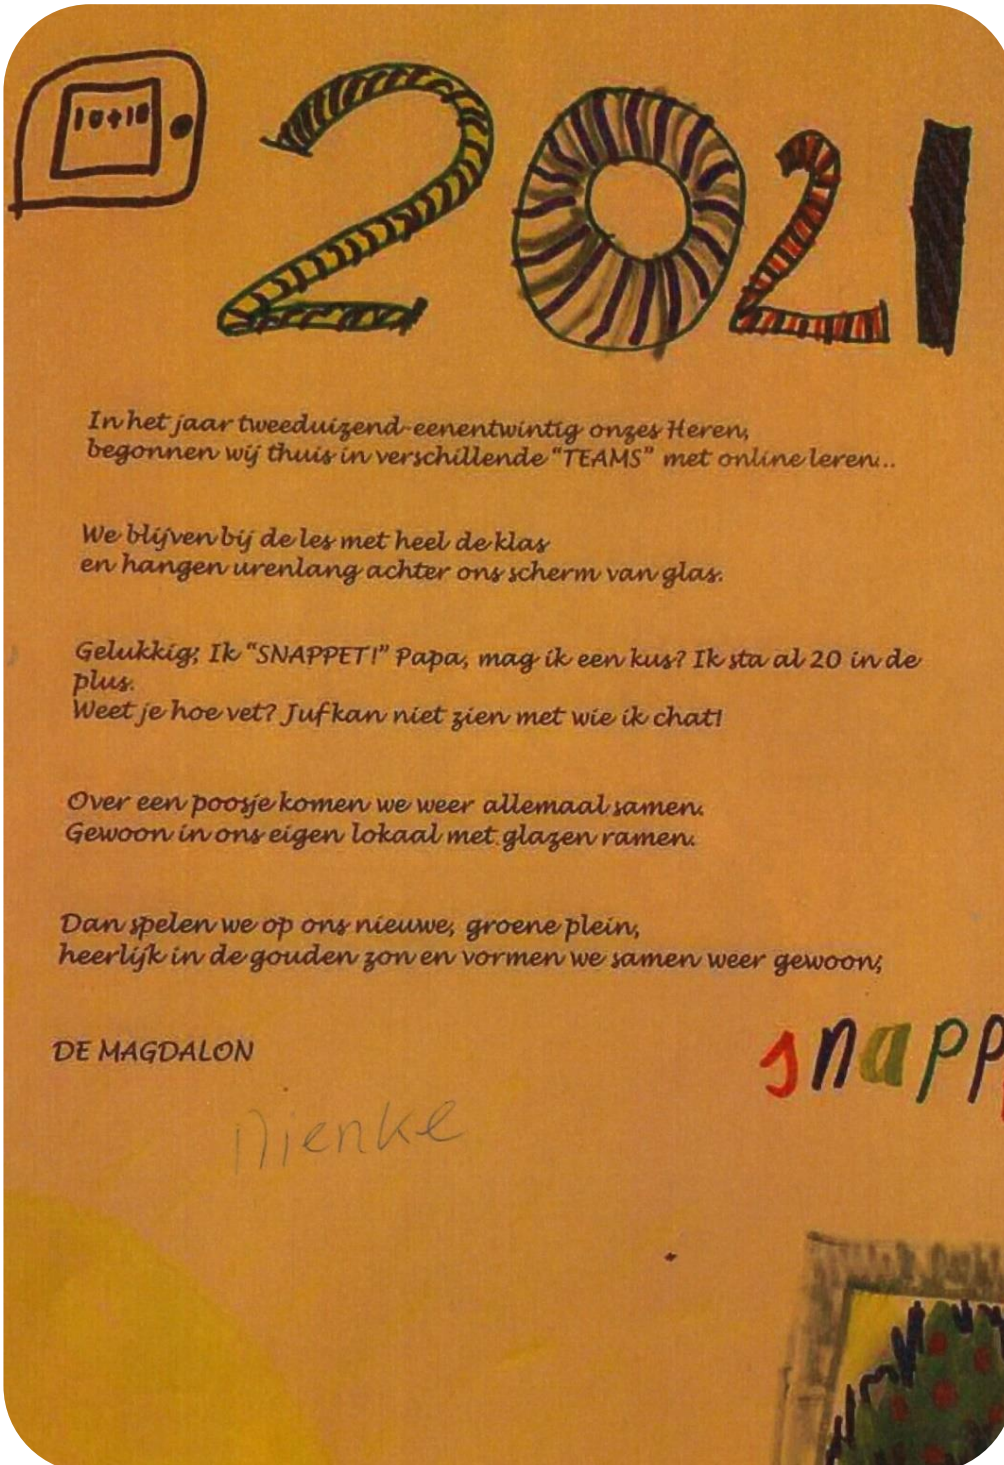 10+10
2021
In het jaar tweeduizend-eenentwintig onzes Heren,
begonnen wij thuis in verschillende “TEAMS” met online leren...
We blijven bij de les met heel de klas
en hangen urenlang achter ons scherm van glas.
Gelukkig; Ik “SNAPPET!” Papa, mag ik een kus? Ik sta al 20 in de
plus.
Weet je hoe vet? Juf kan niet zien met wie ik chat!
Over een poosje komen we weer allemaal samen.
Gewoon in ons eigen lokaal met glazen ramen.
Dan spelen we op ons nieuwe, groene plein,
heerlijk in de gouden zon en vormen we samen weer gewoon;
DE MAGDALON
snapp
nienke